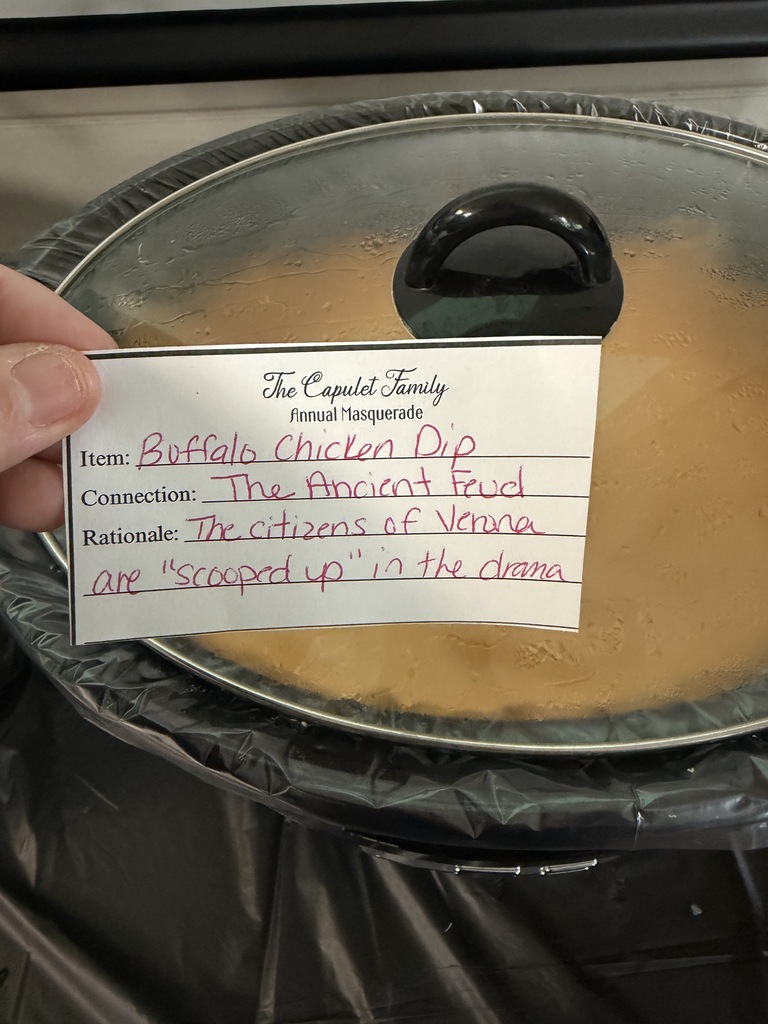 The Capulet Family
Annual Masquerade
Item: Buffalo Chicken Dip
Connection: The Ancient Feud
Rationale: The citizens of Verona
are "scooped up" in the drama